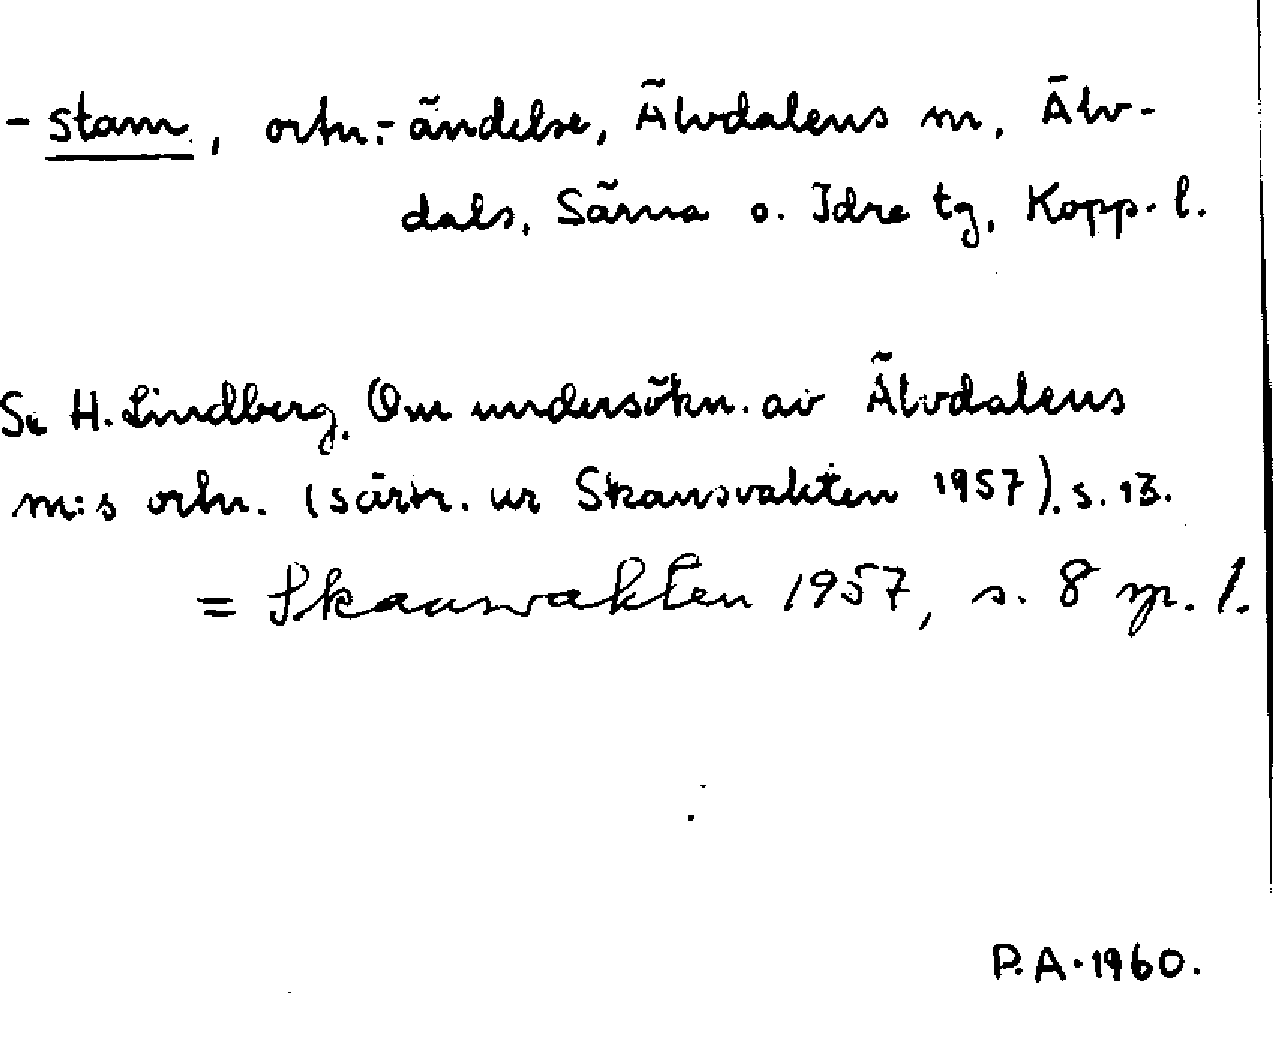 -stam, ortn.-ändelse, Älvdalens m, Älv-
dals, Särna o. Idre tg, Kopp. l.
Se H. Lindberg. Om undersökn. av Älvdalens
m:s ortn. (särtr. ur Skansvakten 1957). s. 13.
= Skansvakten 1957, s. 8 sp. 1.
P.A. 1960.